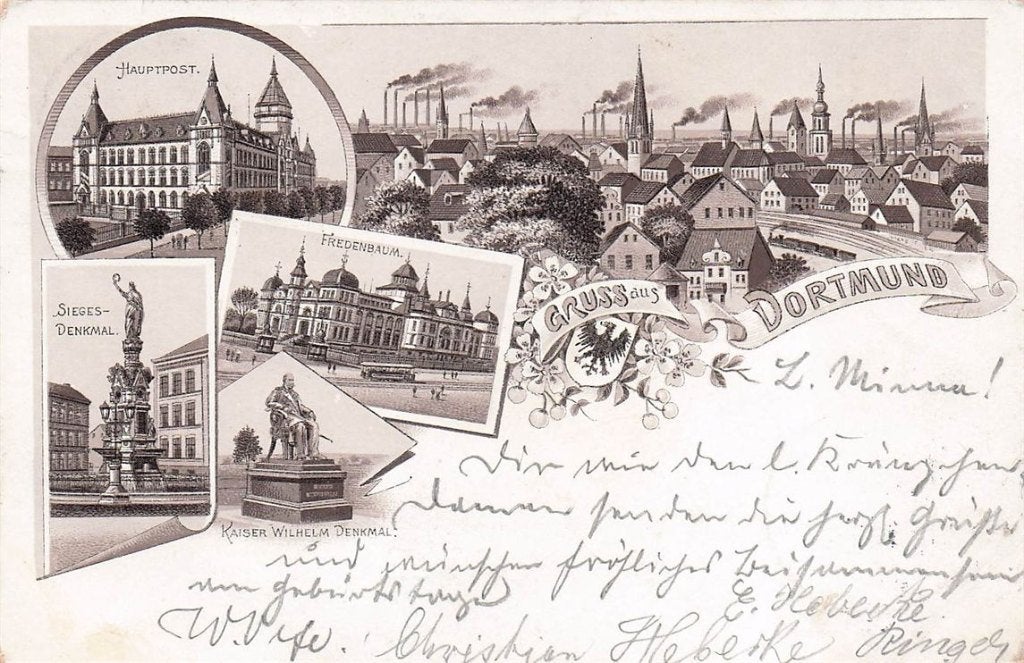 HAUPTPOST.
SIEGES-
DENKMAL.
FREDENBAUM.
KAISER WILHELM DENKMAL.
GRUSS aus
DORTMUND
L. Minna!
Dir wie den l. Kränzchen
damen senden die herzl. Grüße
und wünschen fröhliches Beisammensein
am Geburtstage
E. Heberke
W. Christian Heberke